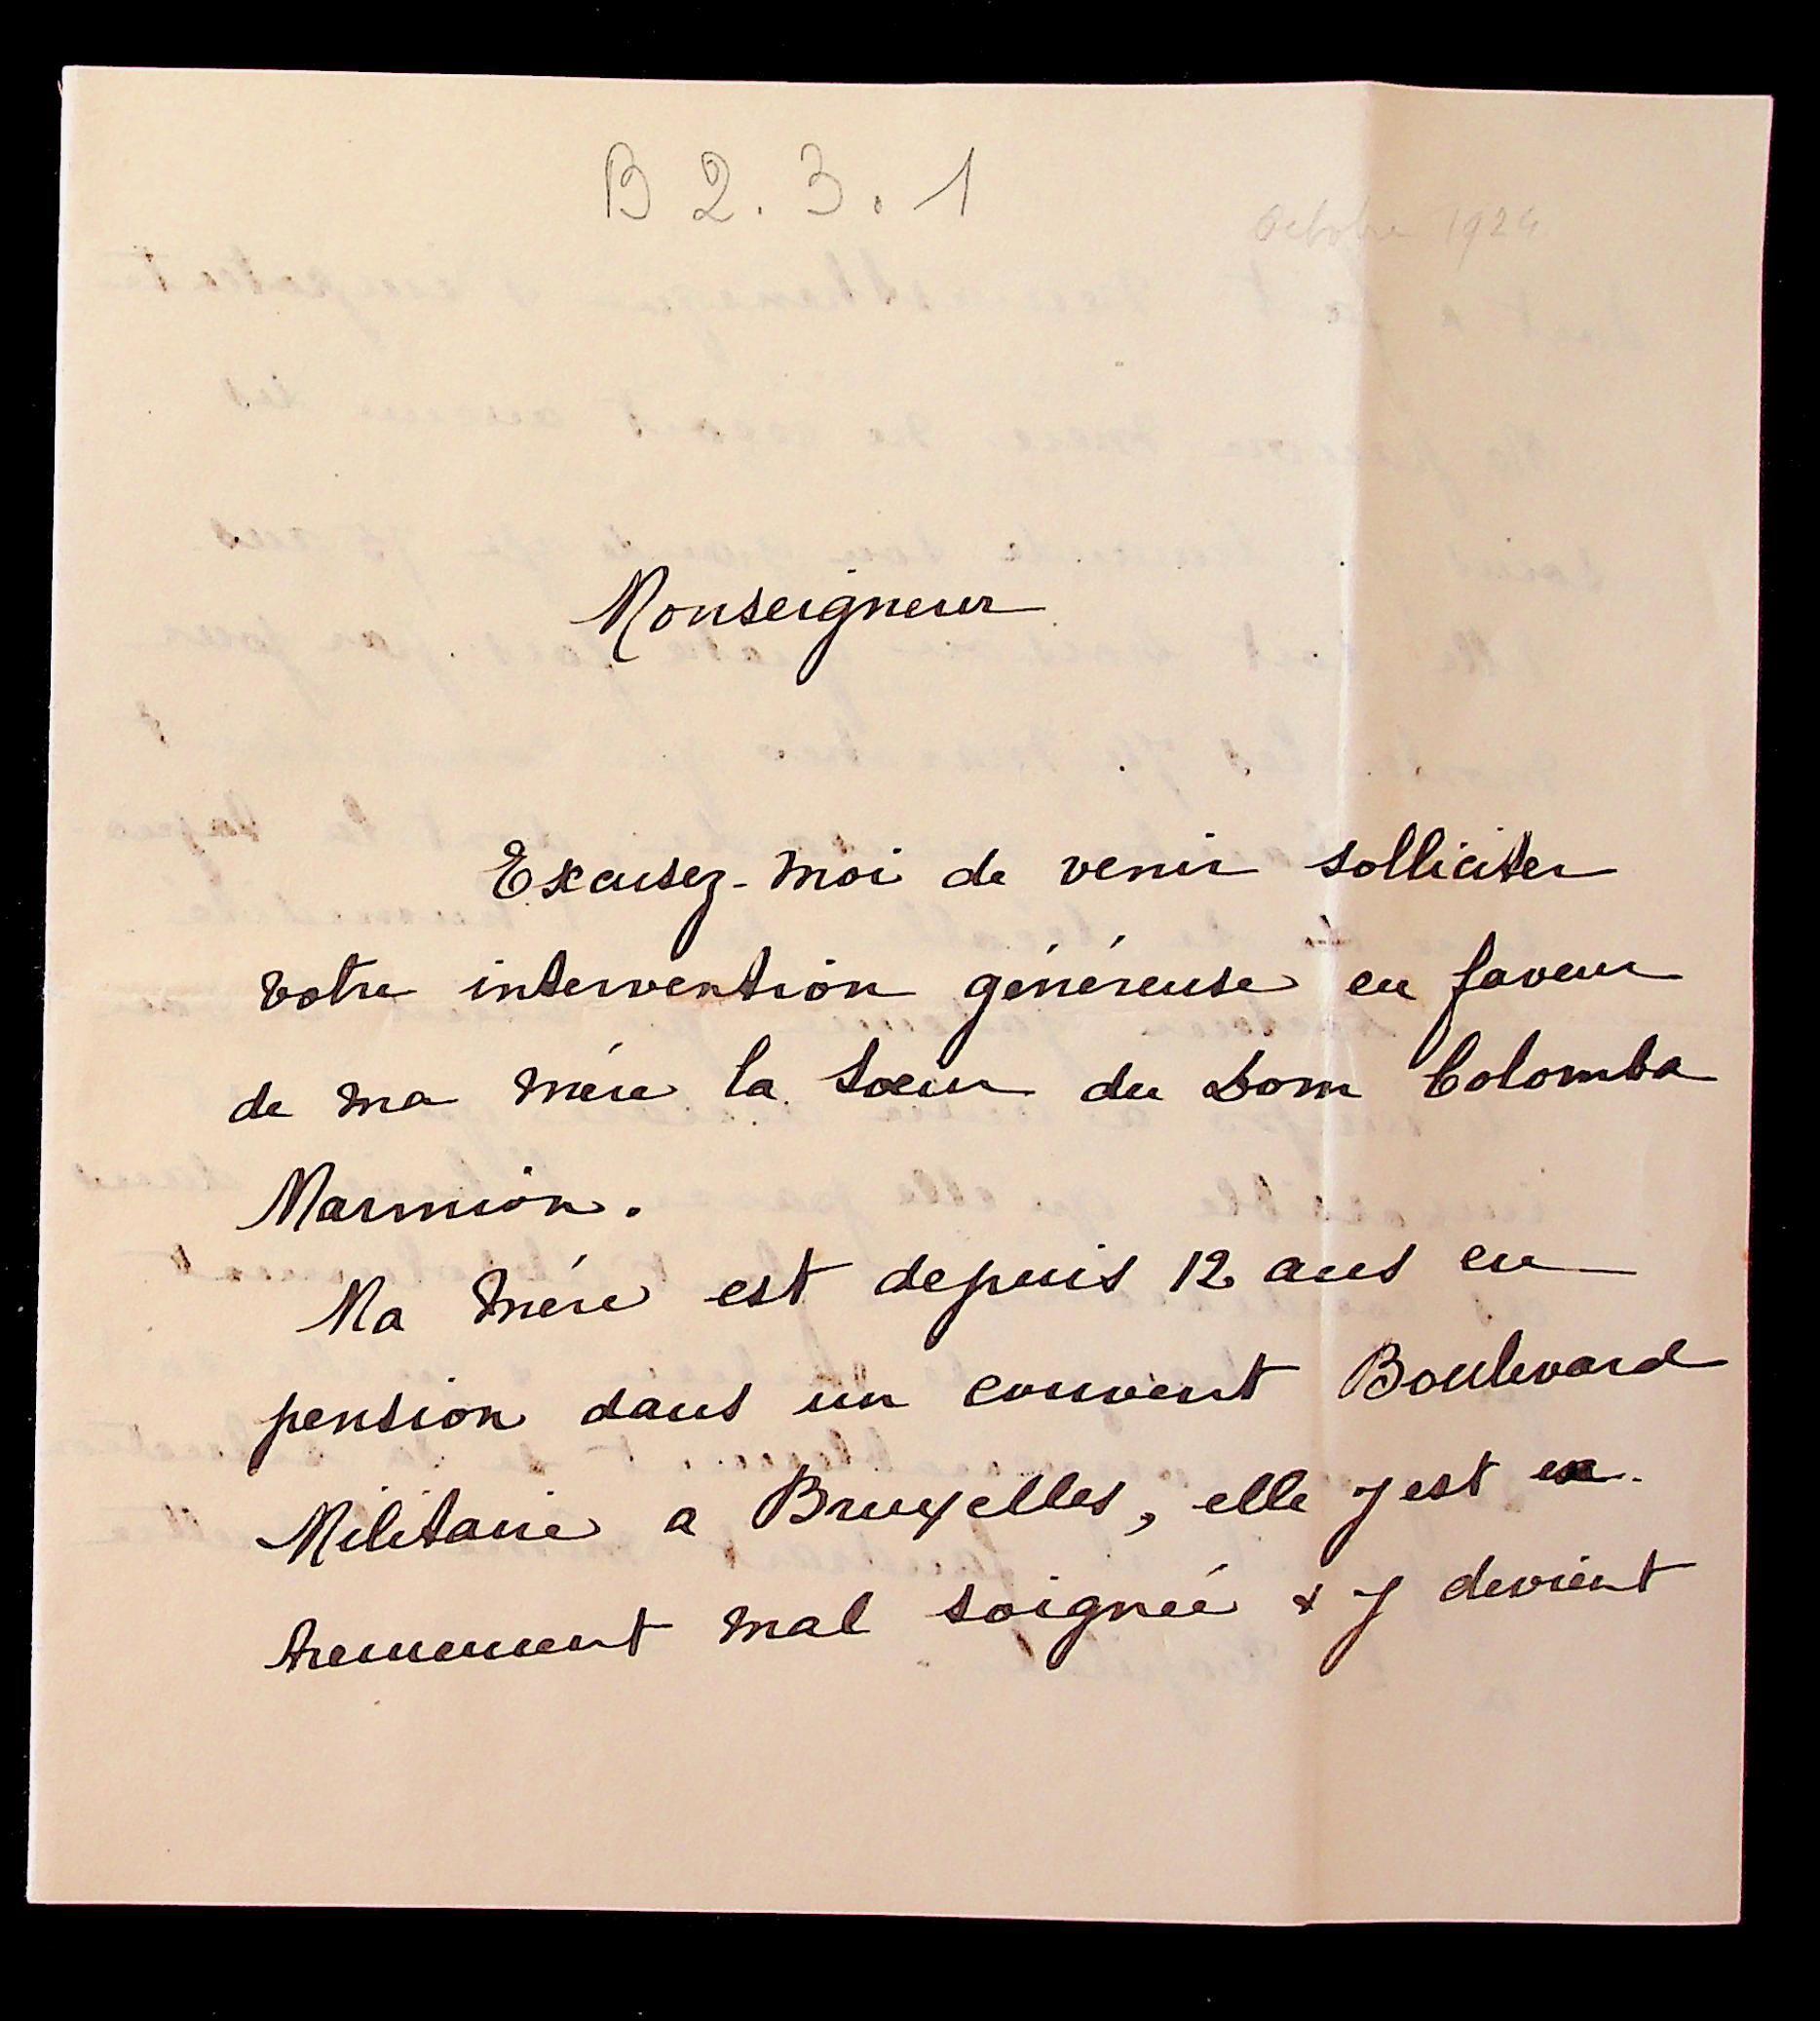 B 2. 3. 1
Octobre 1924
Monseigneur
Excusez-moi de venir solliciter
votre intervention généreuse en faveur
de ma mère la soeur du Dom Colomba
Marmion.
Ma mère est depuis 12 ans en
pension dans un couvent Boulevard
Militaire a Bruxelles, elle y est ex-
tremement mal soignée & y devient